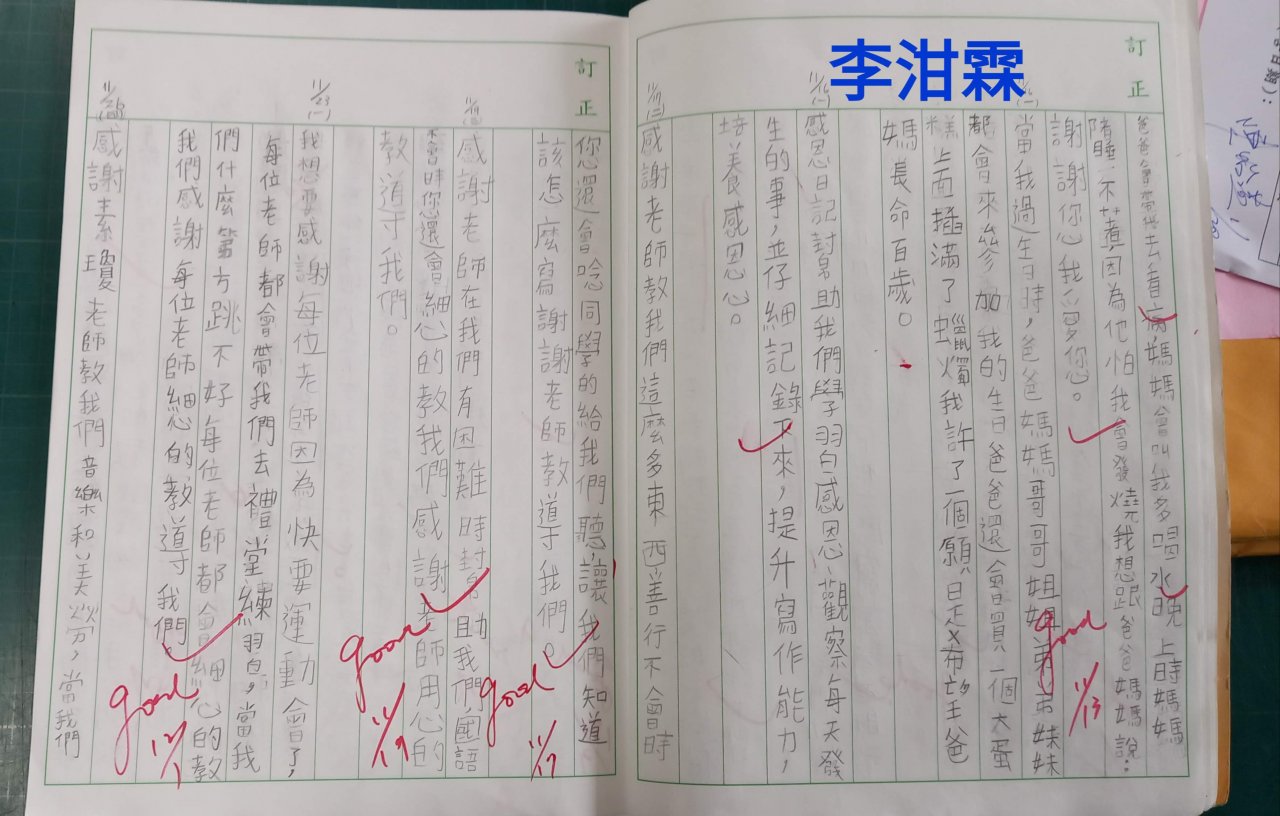 李泔霖
訂正
爸爸會帶我去看病媽媽會叫我多喝水晚上時媽媽
陪睡不著,因為他怕我會發燒我想跟爸爸媽媽說:
謝謝你們我愛你。
good 11/13
11/16(一)
當我過生日時,爸爸媽媽哥哥姐姐弟弟妹妹
都會來參加我的生日爸爸還會買一個大蛋
糕上面插滿了蠟燭我許了一個願,是希望爸
媽長命百歲。
11/16(一)
感恩日記幫助我們學習感恩、觀察每天發
生的事,並仔細記錄下來,提升寫作能力,
培養感恩心。
感謝老師教我們這麼多東西善行不會時
訂正
您還會唸同學的給我們聽,讓我們知道
該怎麼寫謝謝老師教導我們。
good 11/17
感謝老師在我們有困難時幫助我們,國語
不會時您還會細心的教我們感謝老師用心的
教導我們。
good 11/19
11/23(一)
我想要感謝每位老師因為快要運動會了,
每位老師都會帶我們去禮堂練習,當我
們什麼第方跳不好每位老師都會細心的教
我們感謝每位老師細心的教導我們。
good 12/1
感謝素瓊老師教我們音樂和美勞,當我們